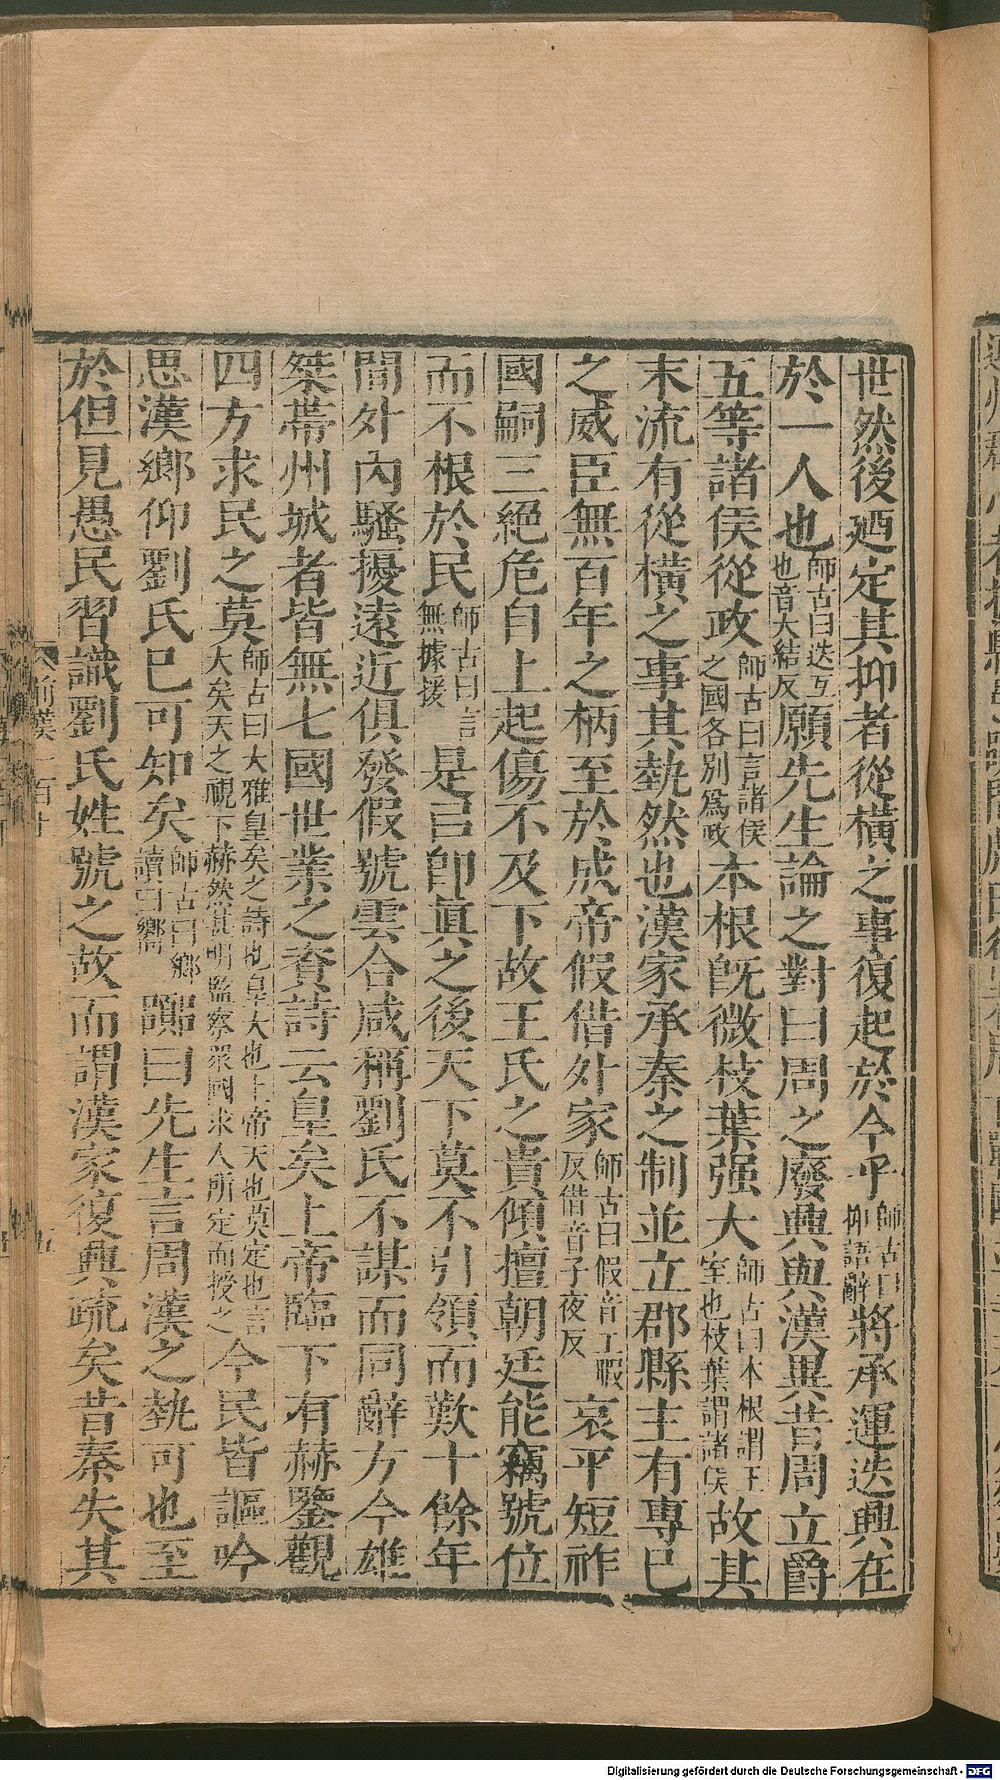 世然後廼定其抑者從橫之事復起於今乎師古曰抑語辭將承運迭興在
於一人也師古曰迭互也音大結反願先生論之對曰周之廢興與漢異昔周立爵
五等諸侯從政師古曰言諸侯之國各別爲政本根旣微枝葉强大師古曰本根謂王室也枝葉謂諸侯故其
末流有從橫之事其埶然也漢家承秦之制並立郡縣主有專已
之威臣無百年之柄至於成帝假借外家師古曰假音工暇反借音子夜反哀平短祚
國嗣三絕危自上起傷不及下故王氏之貴傾擅朝廷能竊號位
而不根於民師古曰言無據援是已卽眞之後天下莫不引領而歎十餘年
間外內騷擾遠近俱發假號雲合咸稱劉氏不謀而同辭方今雄
桀帶州城者皆無七國世業之資詩云皇矣上帝臨下有赫鑒觀
四方求民之莫師古曰大雅皇矣之詩也皇大也上帝天也莫定也言大矣天之視下赫然甚明監察眾國求人所定而授之今民皆謳吟
思漢鄉仰劉氏已可知矣師古曰鄉讀曰嚮隴曰先生言周漢之埶可也至
於但見愚民習識劉氏姓號之故而謂漢家復興疏矣昔秦失其
前漢一百廿
Digitalisierung gefördert durch die Deutsche Forschungsgemeinschaft - DFG